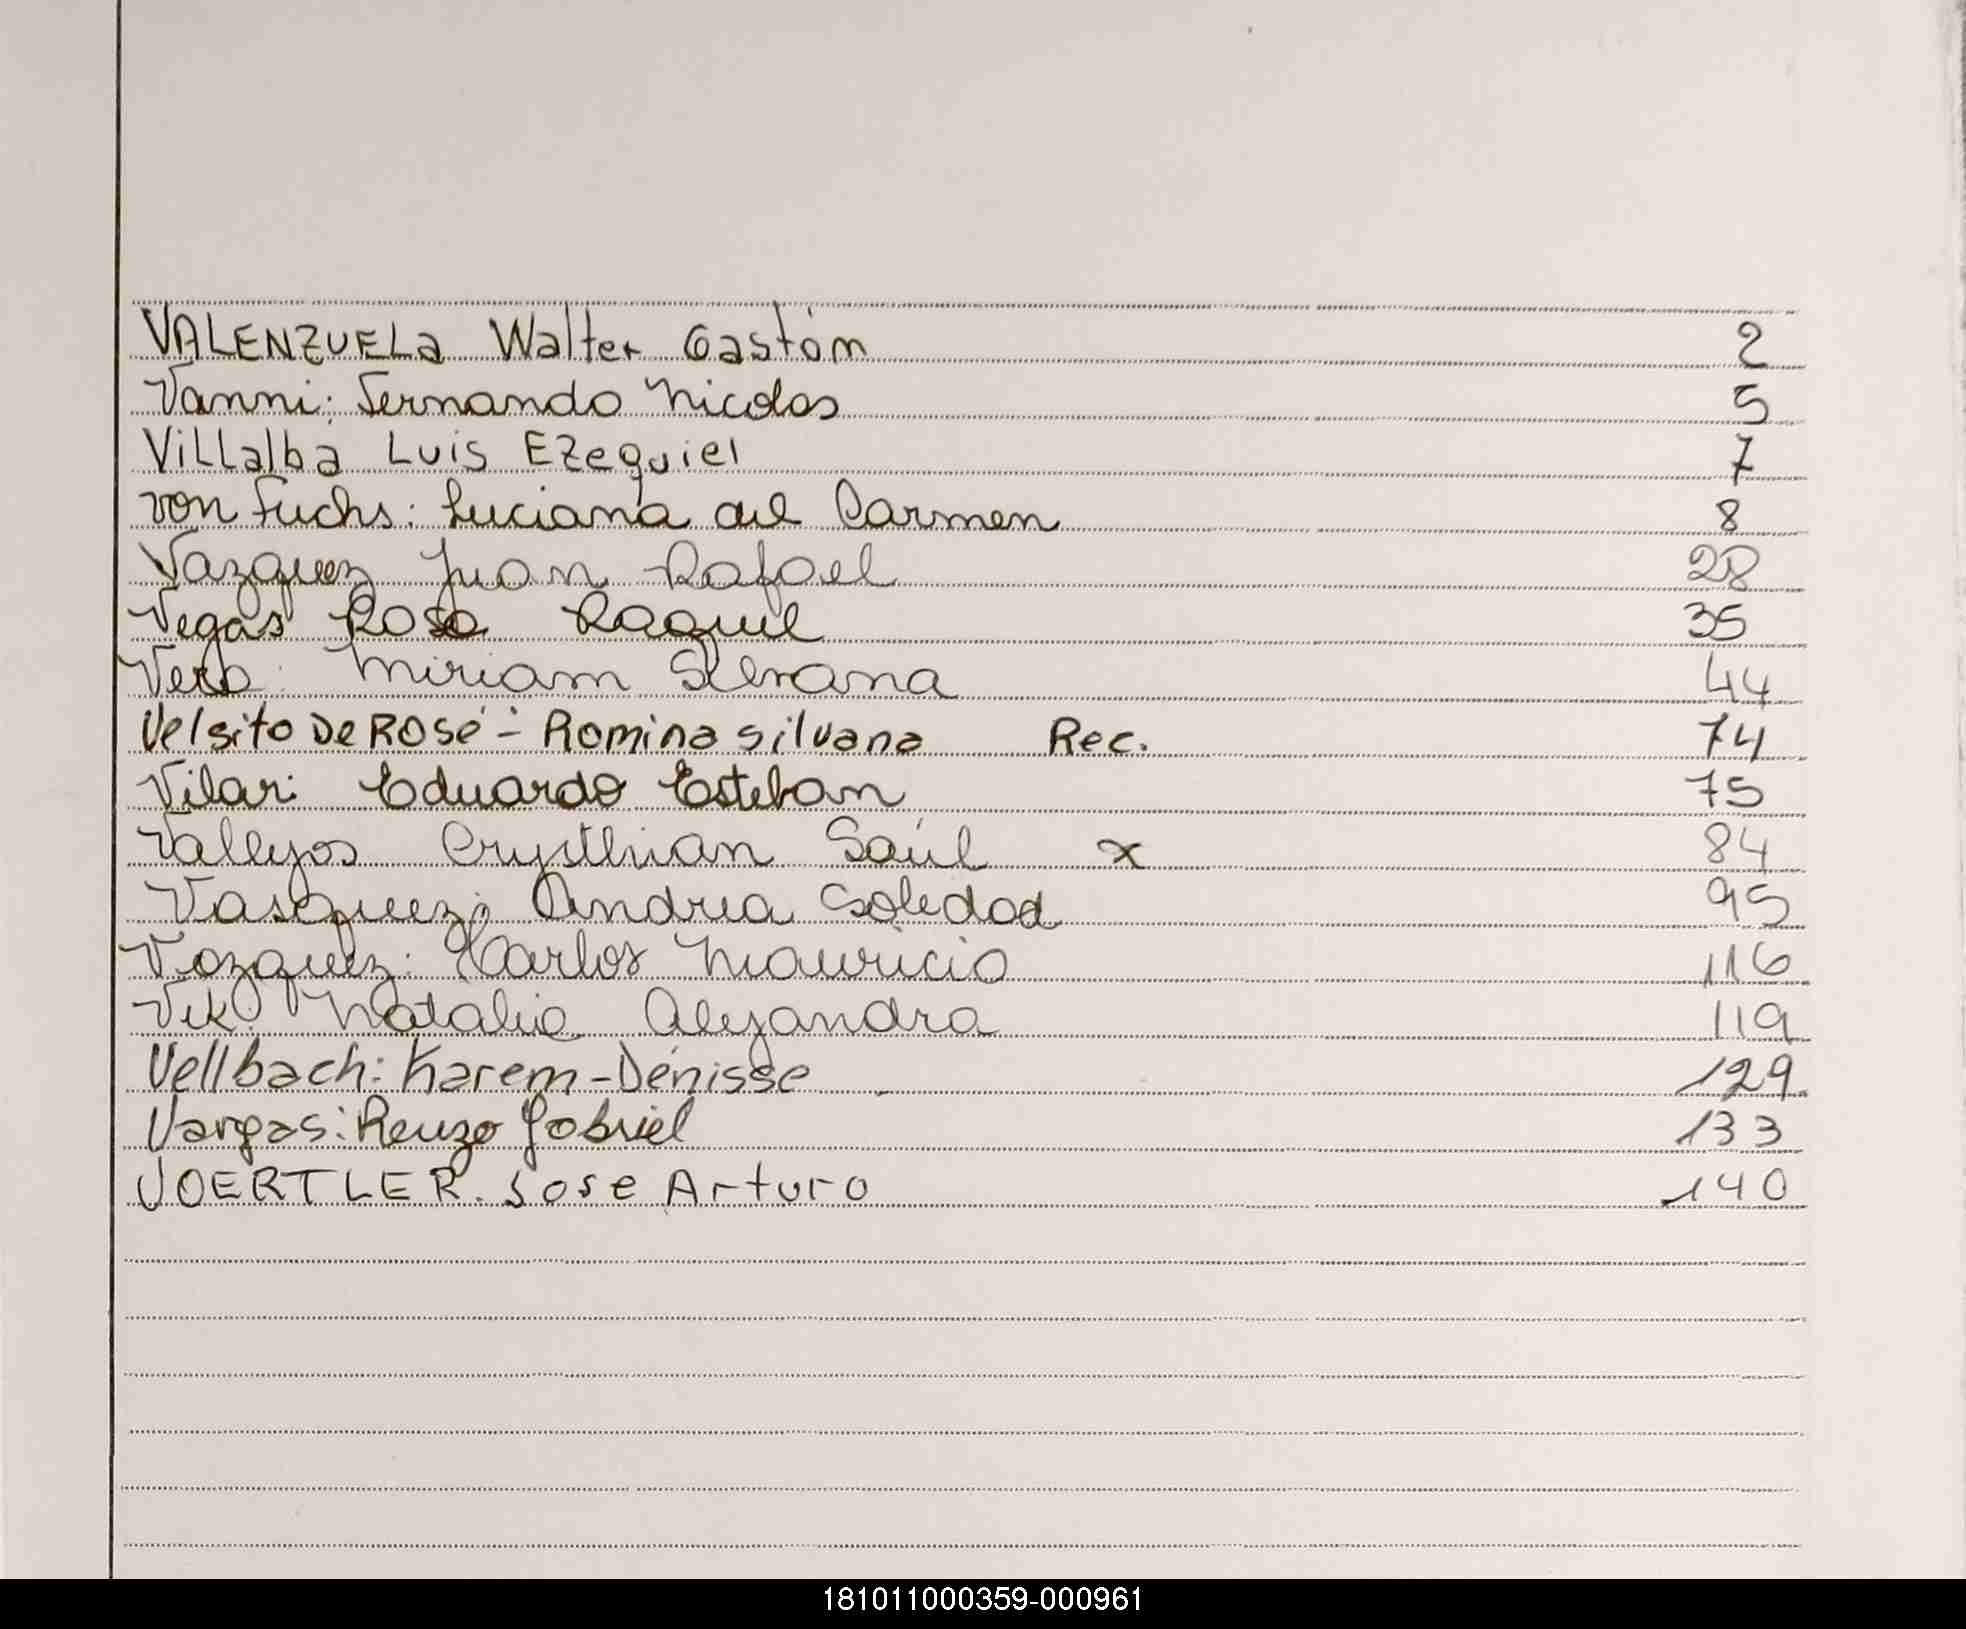 VALENZUELA Walter Gastón 2
Vanni: Fernando Nicolas 5
Villalba Luis Ezequiel 7
von Fuchs: Luciana del Carmen 8
Vazquez Juan Rafael 28
Vegas Rosa Raquel 35
Vera: Miriam 44
Velsito De Rosé - Romina silvana Rec. 74
Vilar: Eduardo Esteban 75
Vallejos Crysthian Saúl x 84
Vasquez: Andrea Soledad 95
Vazquez: Carlos Mauricio 116
Vek: Natalia Alejandra 119
Vellbach: Karem-Dénisse 129
Vargas: Renzo Gabriel 133
VOERTLER. Jose Arturo 140
181011000359-000961